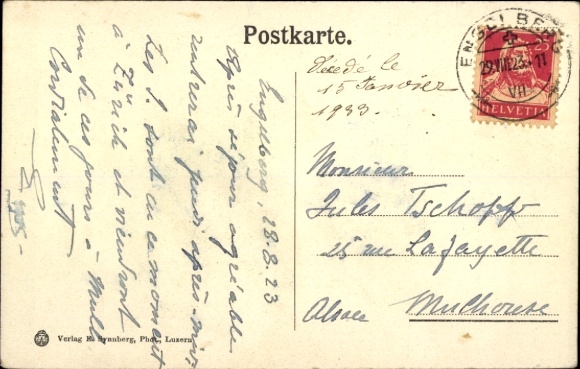 Postkarte.
ENGELBERG
29.VIII.23 - 11
VII
25
HELVETIA
Décédé le
15 Janvier
1933
Engelberg, 28.8.23
Après séjour agréable
rentrerai jeudi après-midi
Les S. sont en ce moment
à Zürich et viendront
un de ces jours à Mulh.
Cordialement
Monsieur
Jules Tschopp
25 rue Lafayette
Alsace Mulhouse
Verlag E. Synnberg, Phot. Luzern